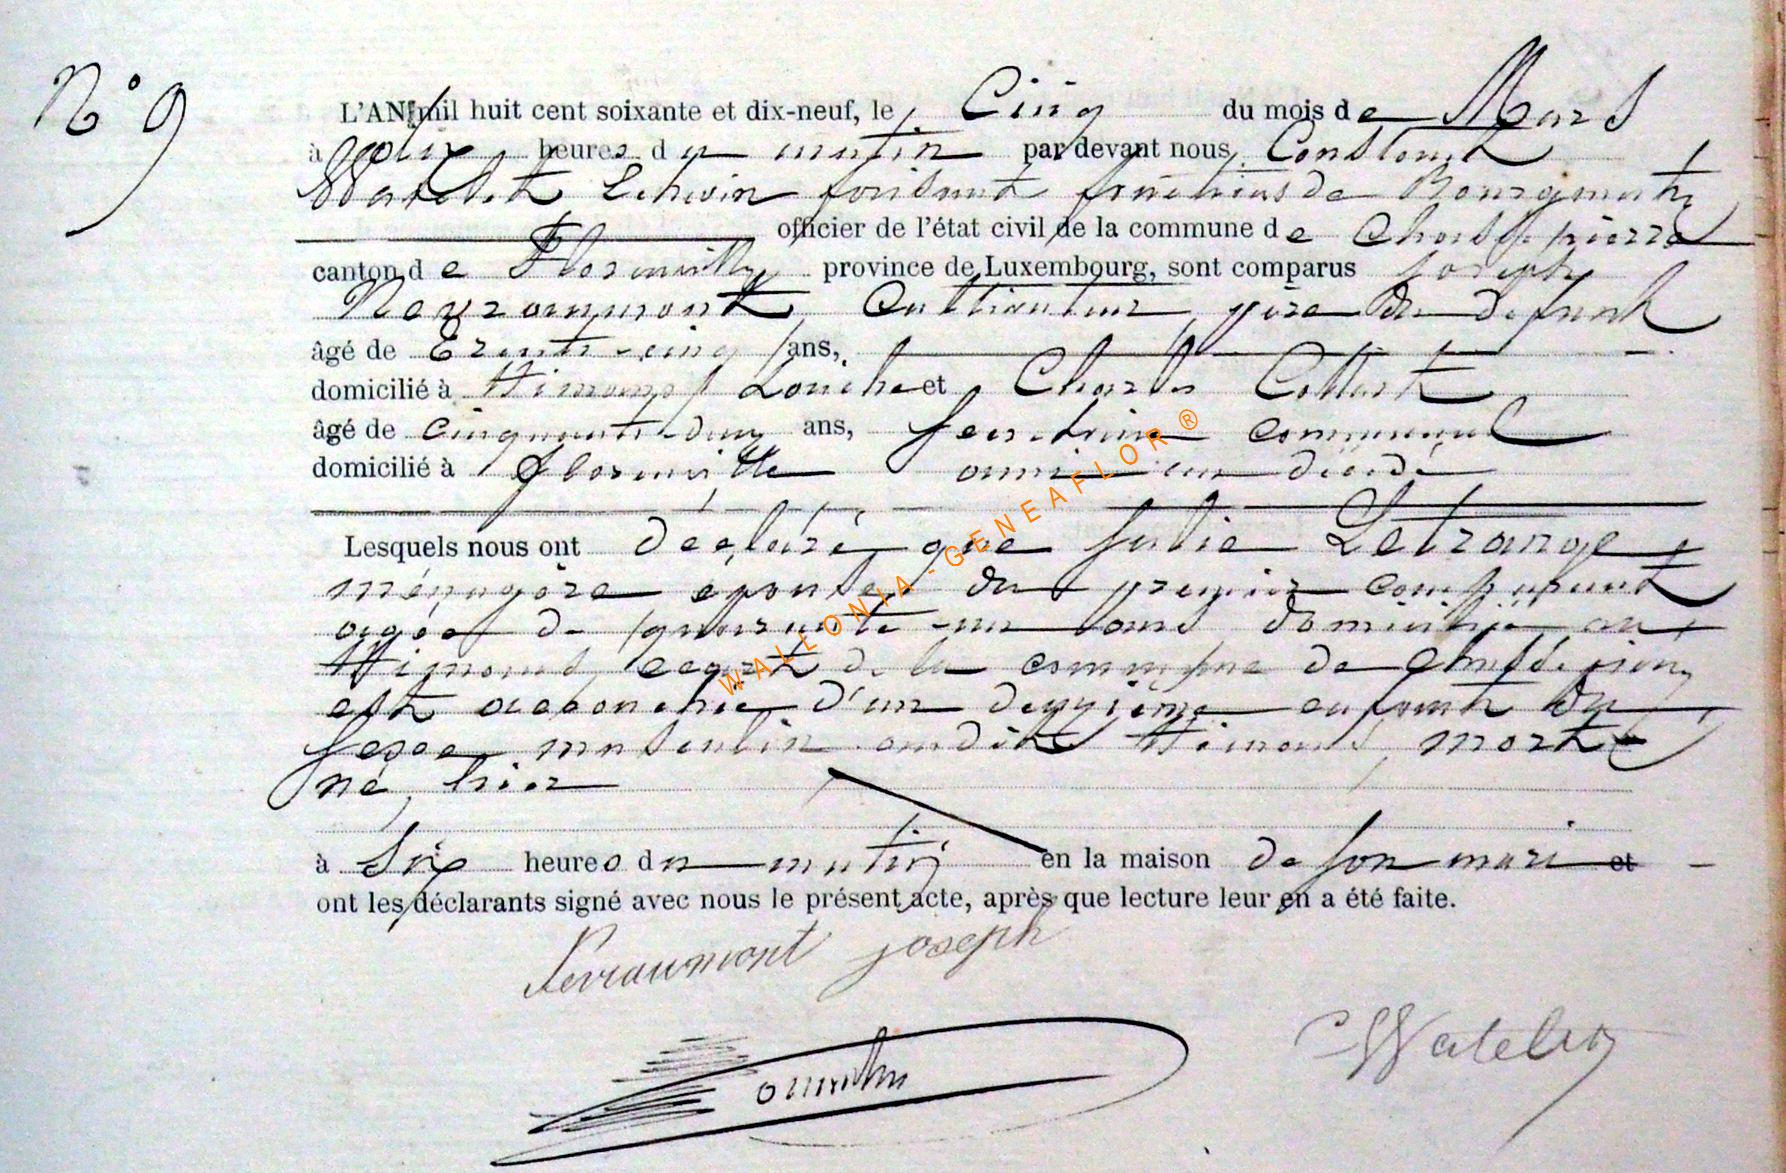 N° 9
L'AN mil huit cent soixante et dix-neuf, le Cinq du mois de Mars
à dix heures du matin par devant nous, Constant
Watelet Echevin faisant fonctions de Bourgmestre
officier de l'état civil de la commune de Chassepierre
canton de Florenville province de Luxembourg, sont comparus Joseph
Nevraumont, Cultivateur, père du défunt
âgé de Trente-cinq ans,
domicilié à Himoms Laiche et Charles
âgé de cinquante-deux ans, Secrétaire communal
domicilié à Florenville ami au décédé
Lesquels nous ont déclaré que Julie Letrange
ménagère épouse du premier comparant
agée de quarante-un ans domiciliée au
de la commune de Chassepierre
est accouchée d'un deuxième enfant du
sexe masculin audit mort
né, hier
à Six heures du matin en la maison de son mari et
ont les déclarants signé avec nous le présent acte, après que lecture leur en a été faite.
Nevraumont joseph
CWatelet
WALLONIA - GENEAFLOR ®